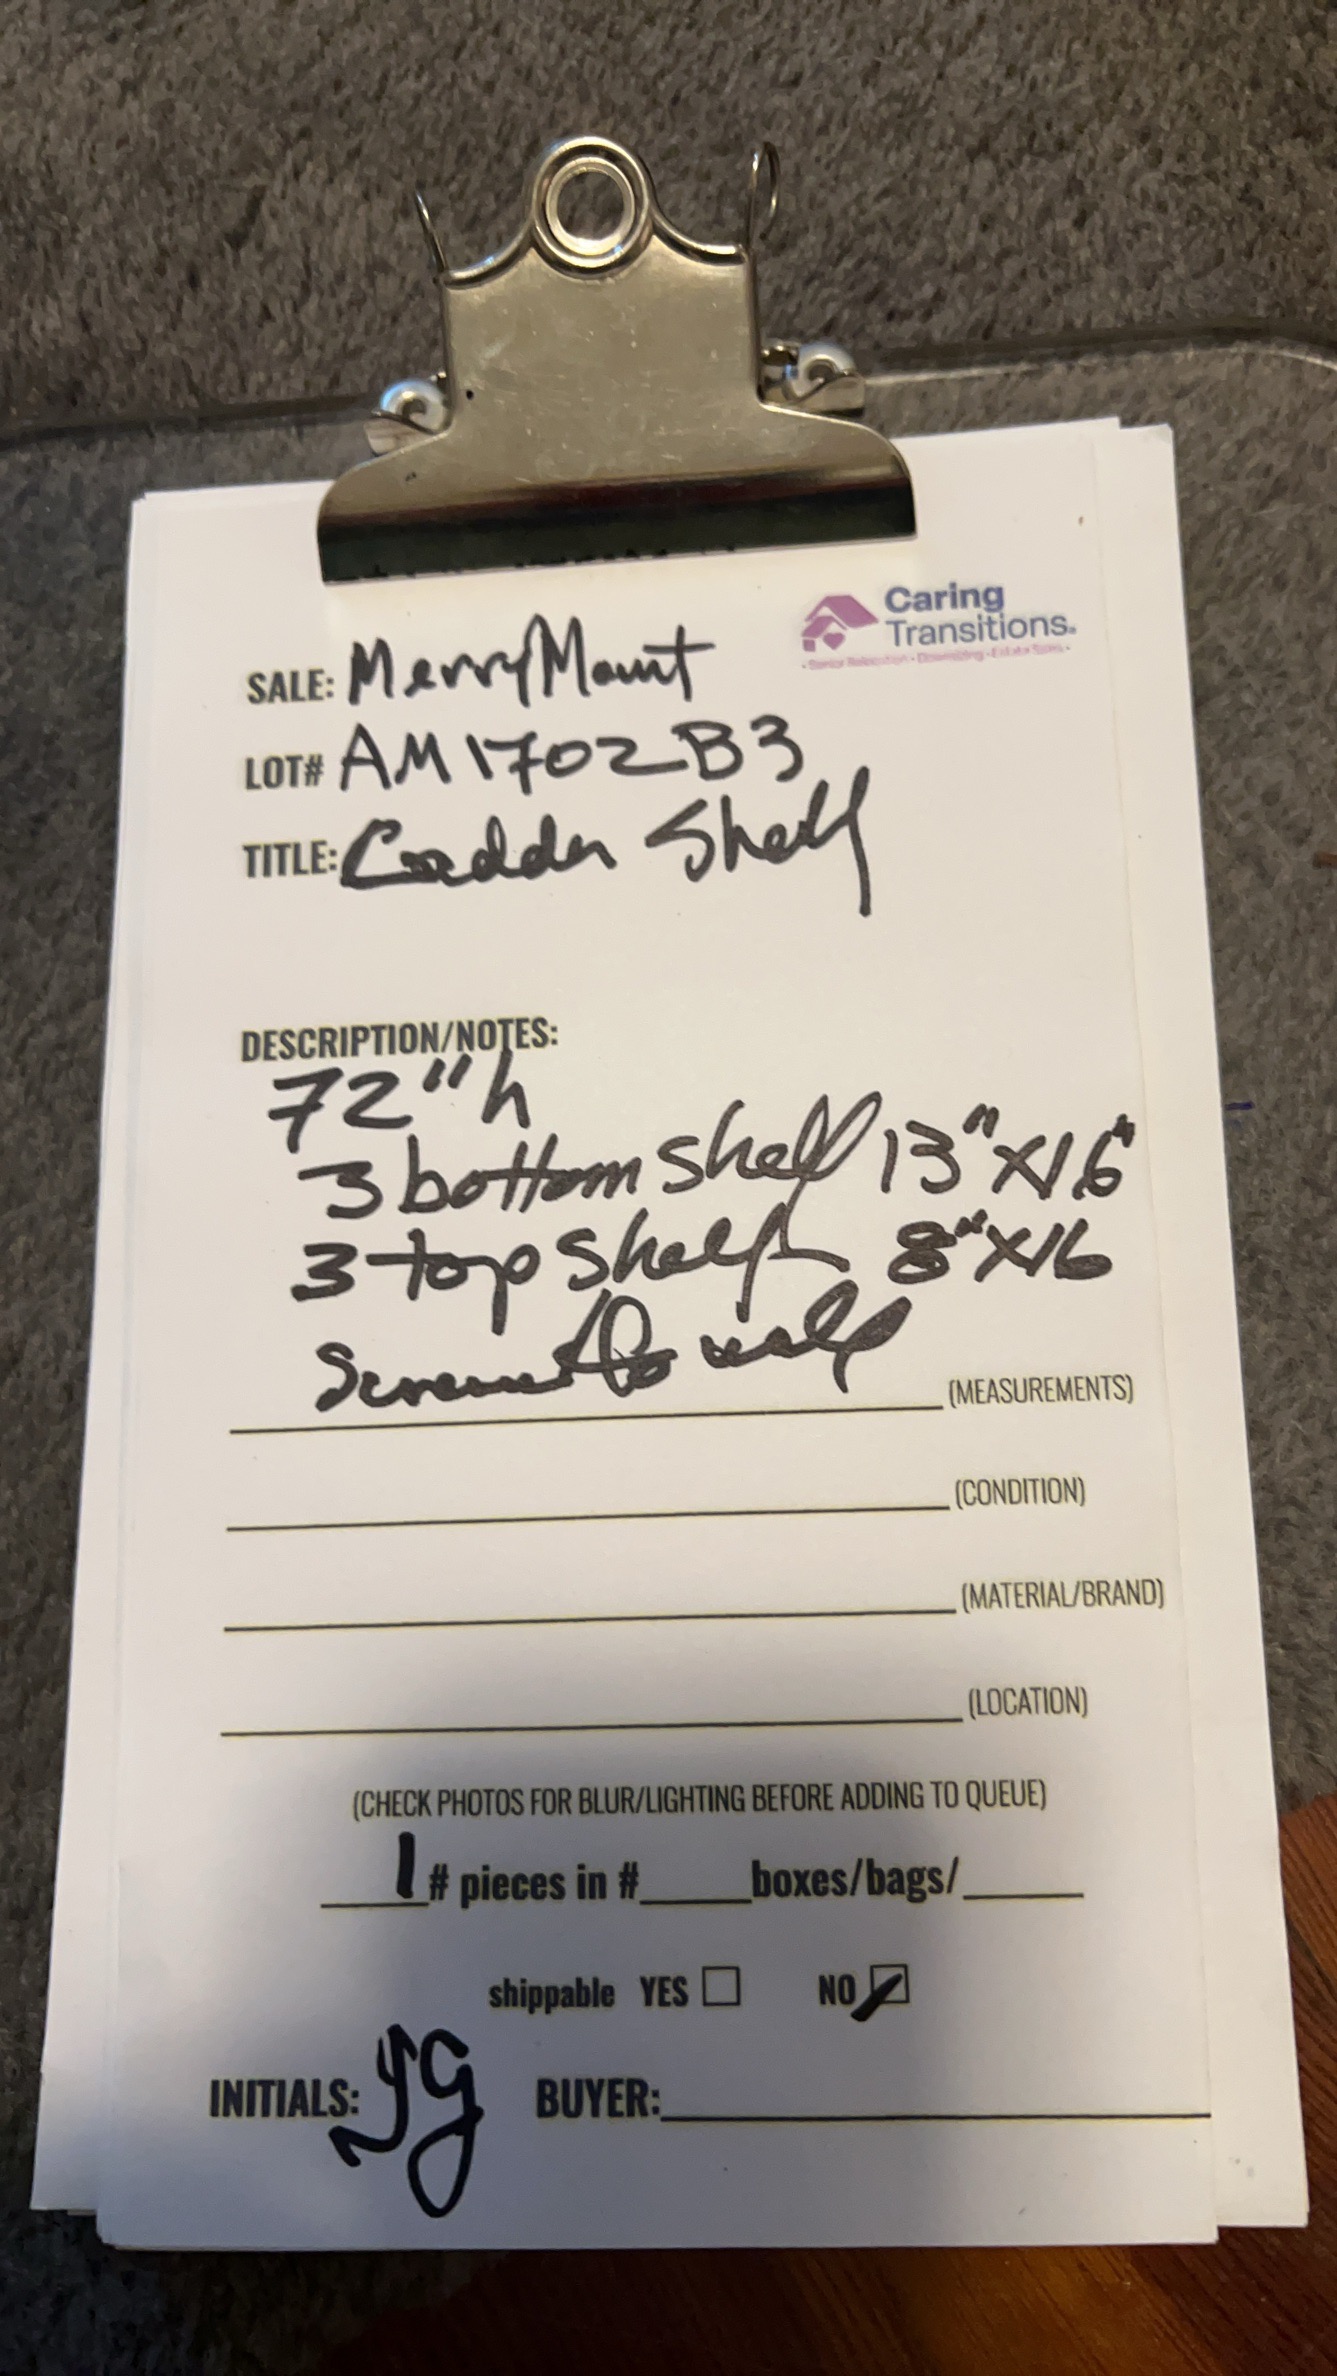 Caring
Transitions.
• Senior Relocation • Downsizing • Estate Sales •
SALE: MerryMount
LOT# AM1702B3
TITLE: Ladder Shelf
DESCRIPTION/NOTES:
72" h
3 bottom shelf 13" x 16"
3 top shelf 8" x 16
to wall
(MEASUREMENTS)
(CONDITION)
(MATERIAL/BRAND)
(LOCATION)
(CHECK PHOTOS FOR BLUR/LIGHTING BEFORE ADDING TO QUEUE)
1 # pieces in # boxes/bags/
shippable YES NO
INITIALS: JG BUYER: